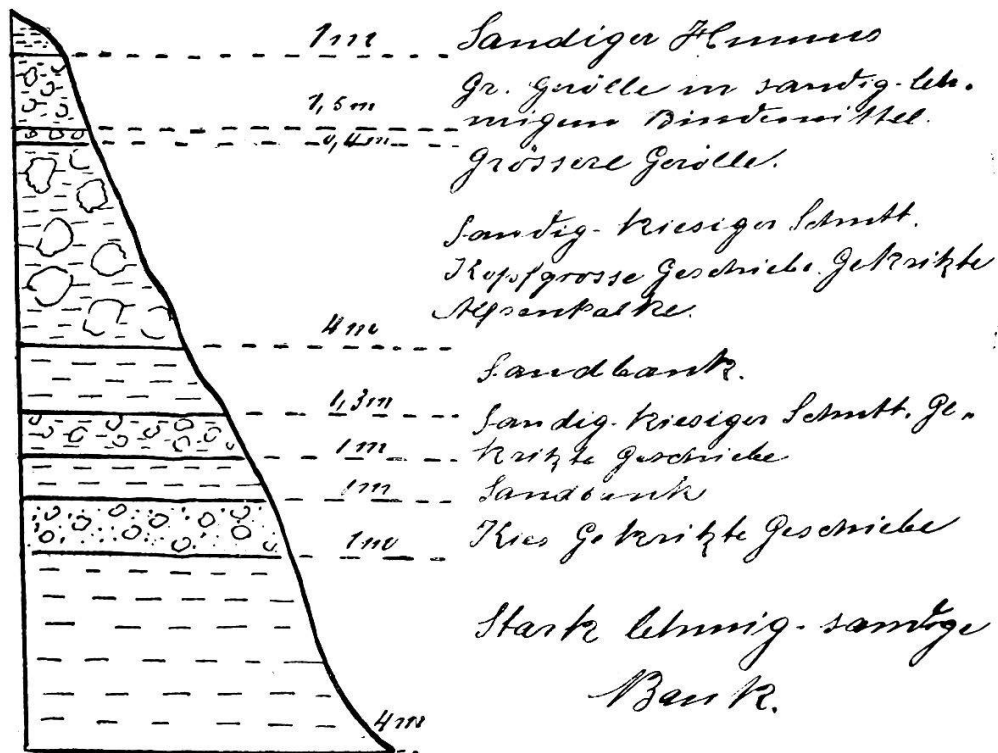 1m Sandiger Humus
Gr. Gerölle in sandig-leh-
1,5m migem Bindemittel.
0,4m
Grössere Gerölle.
Sandig-kiesiger Schutt.
Kopfgrosse Geschiebe. Gekrizte
Alpenkalke.
4m
Sandbank.
1,3m
Sandig-kiesiger Schutt. Ge-
1m krizte Geschiebe
1m Sandbank
Kies Gekrizte Geschiebe
1m
Stark lehmig-sandige
Bank.
4m